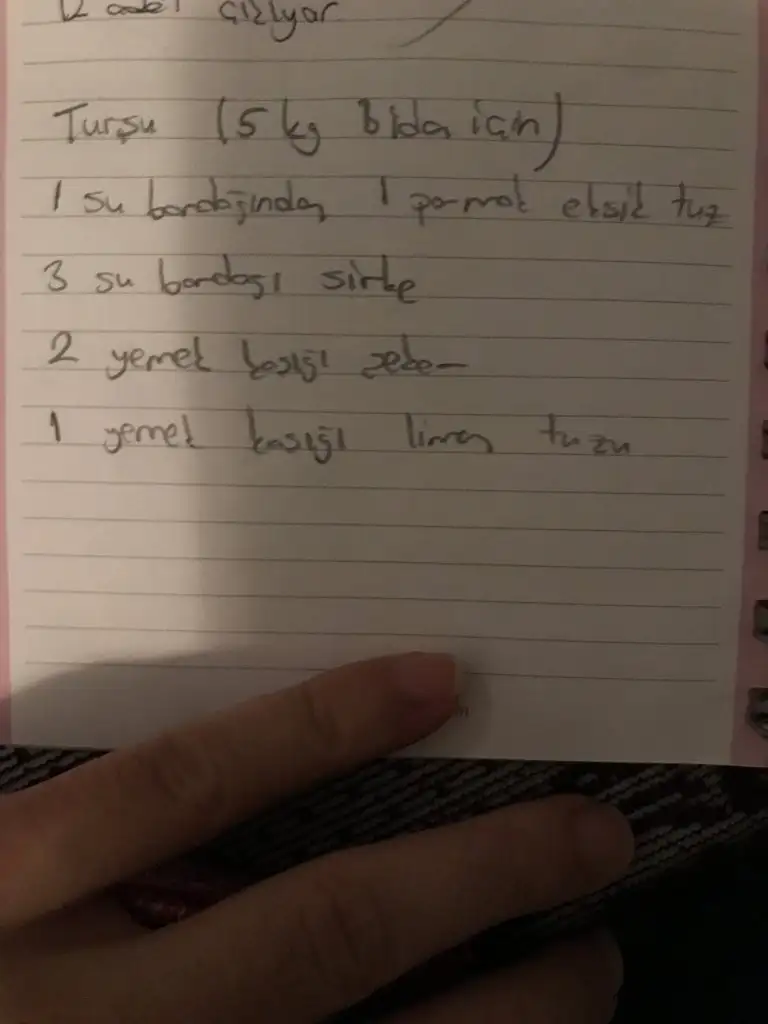 çiziyor
Turşu (5 kg bida için)
1 su bardağından 1 parmak eksik tuz
3 su bardağı sirke
2 yemek kaşığı şeker
1 yemek kaşığı limon tuzu